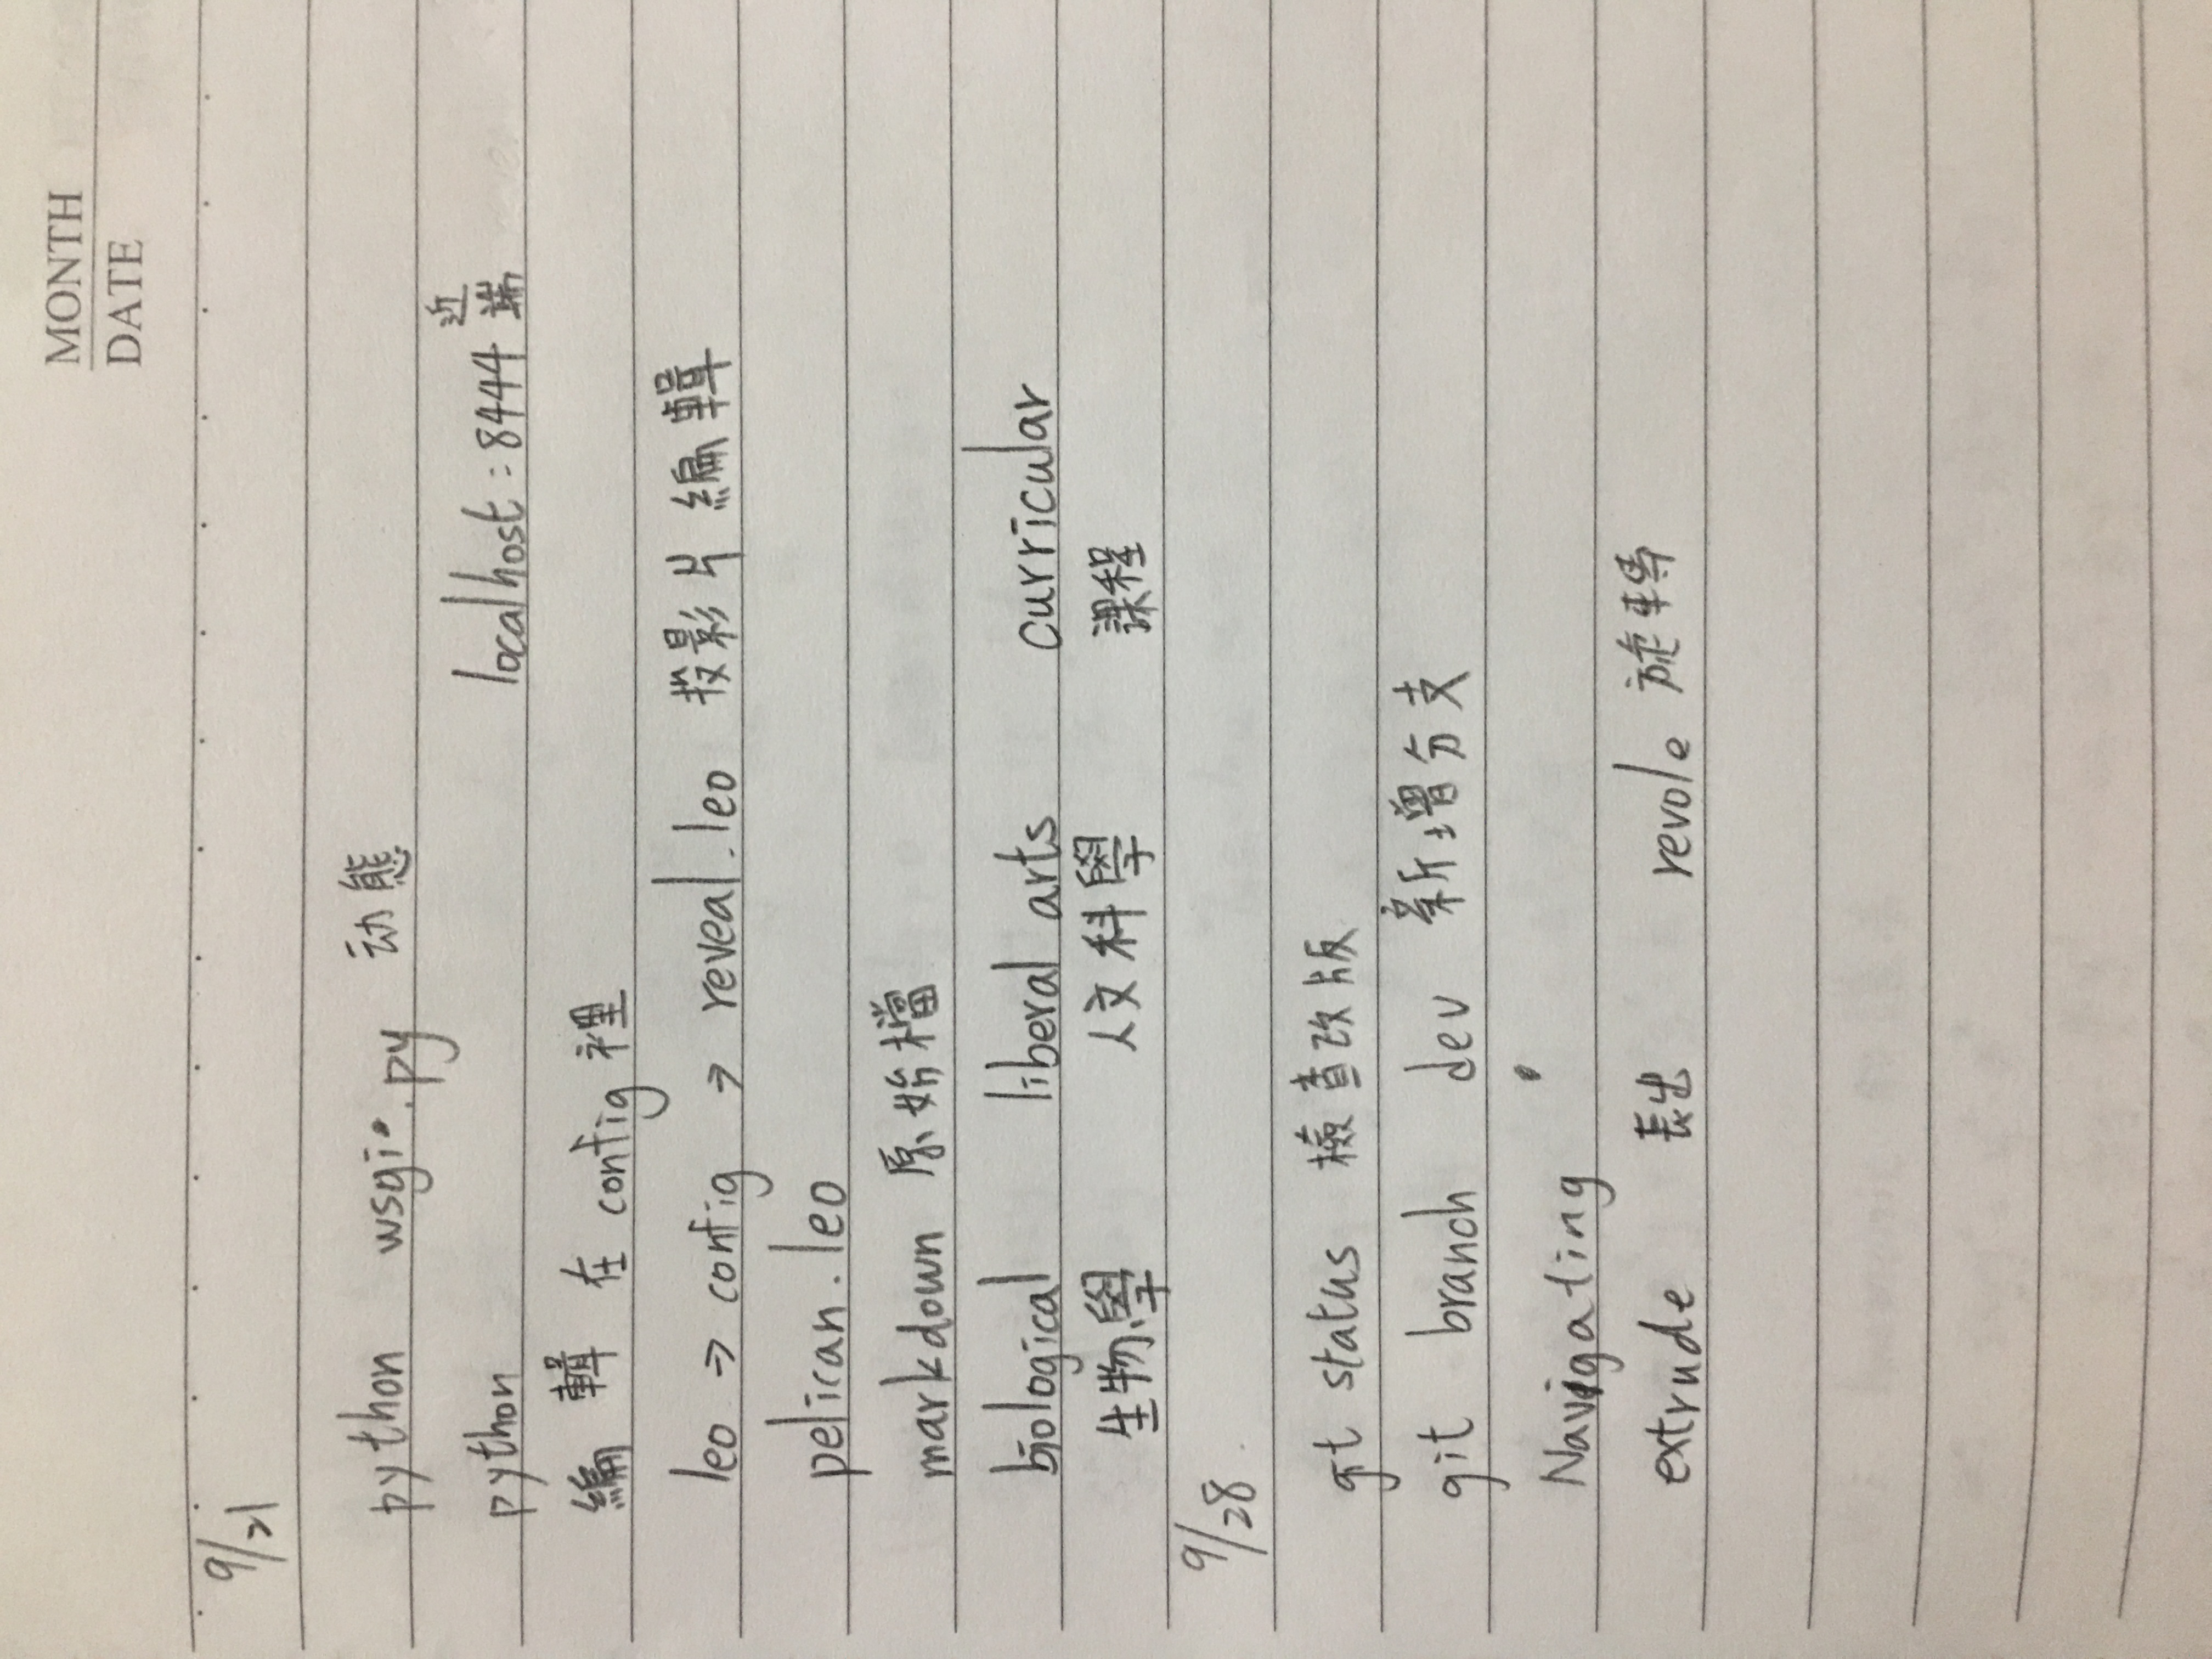 MONTH
DATE
9/21
python wsgi.py 动態
python localhost:8444 近端
編輯在config裡
leo → config → reveal.leo 投影片編輯
pelican.leo
markdown 原始檔
biological liberal arts curricular
生物學 人文科學 課程
9/28
git status 檢查改版
git branch dev 新增分支
Navigating
extrude 長出 revole 旋轉